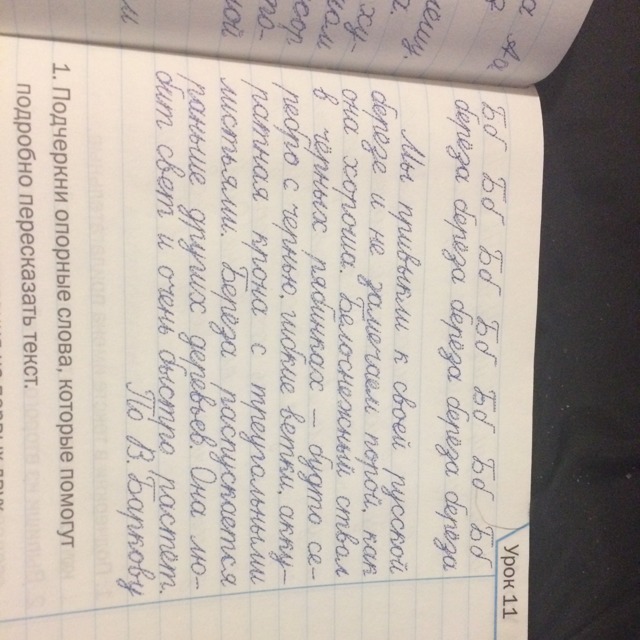 Урок 11
Бб Бб Бб Бб Бб Бб Бб
берёза берёза берёза берёза берёза
Мы привыкли к своей русской
берёзе и не замечаем порой, как
она хороша. Белоснежный ствол
в чёрных рябинках — будто се-
ребро с чернью, гибкие ветки, акку-
ратная крона с треугольными
листьями. Берёза распускается
раньше других деревьев. Она лю-
бит свет и очень быстро растёт.
По В. Баркову
1. Подчеркни опорные слова, которые помогут
подробно пересказать текст.